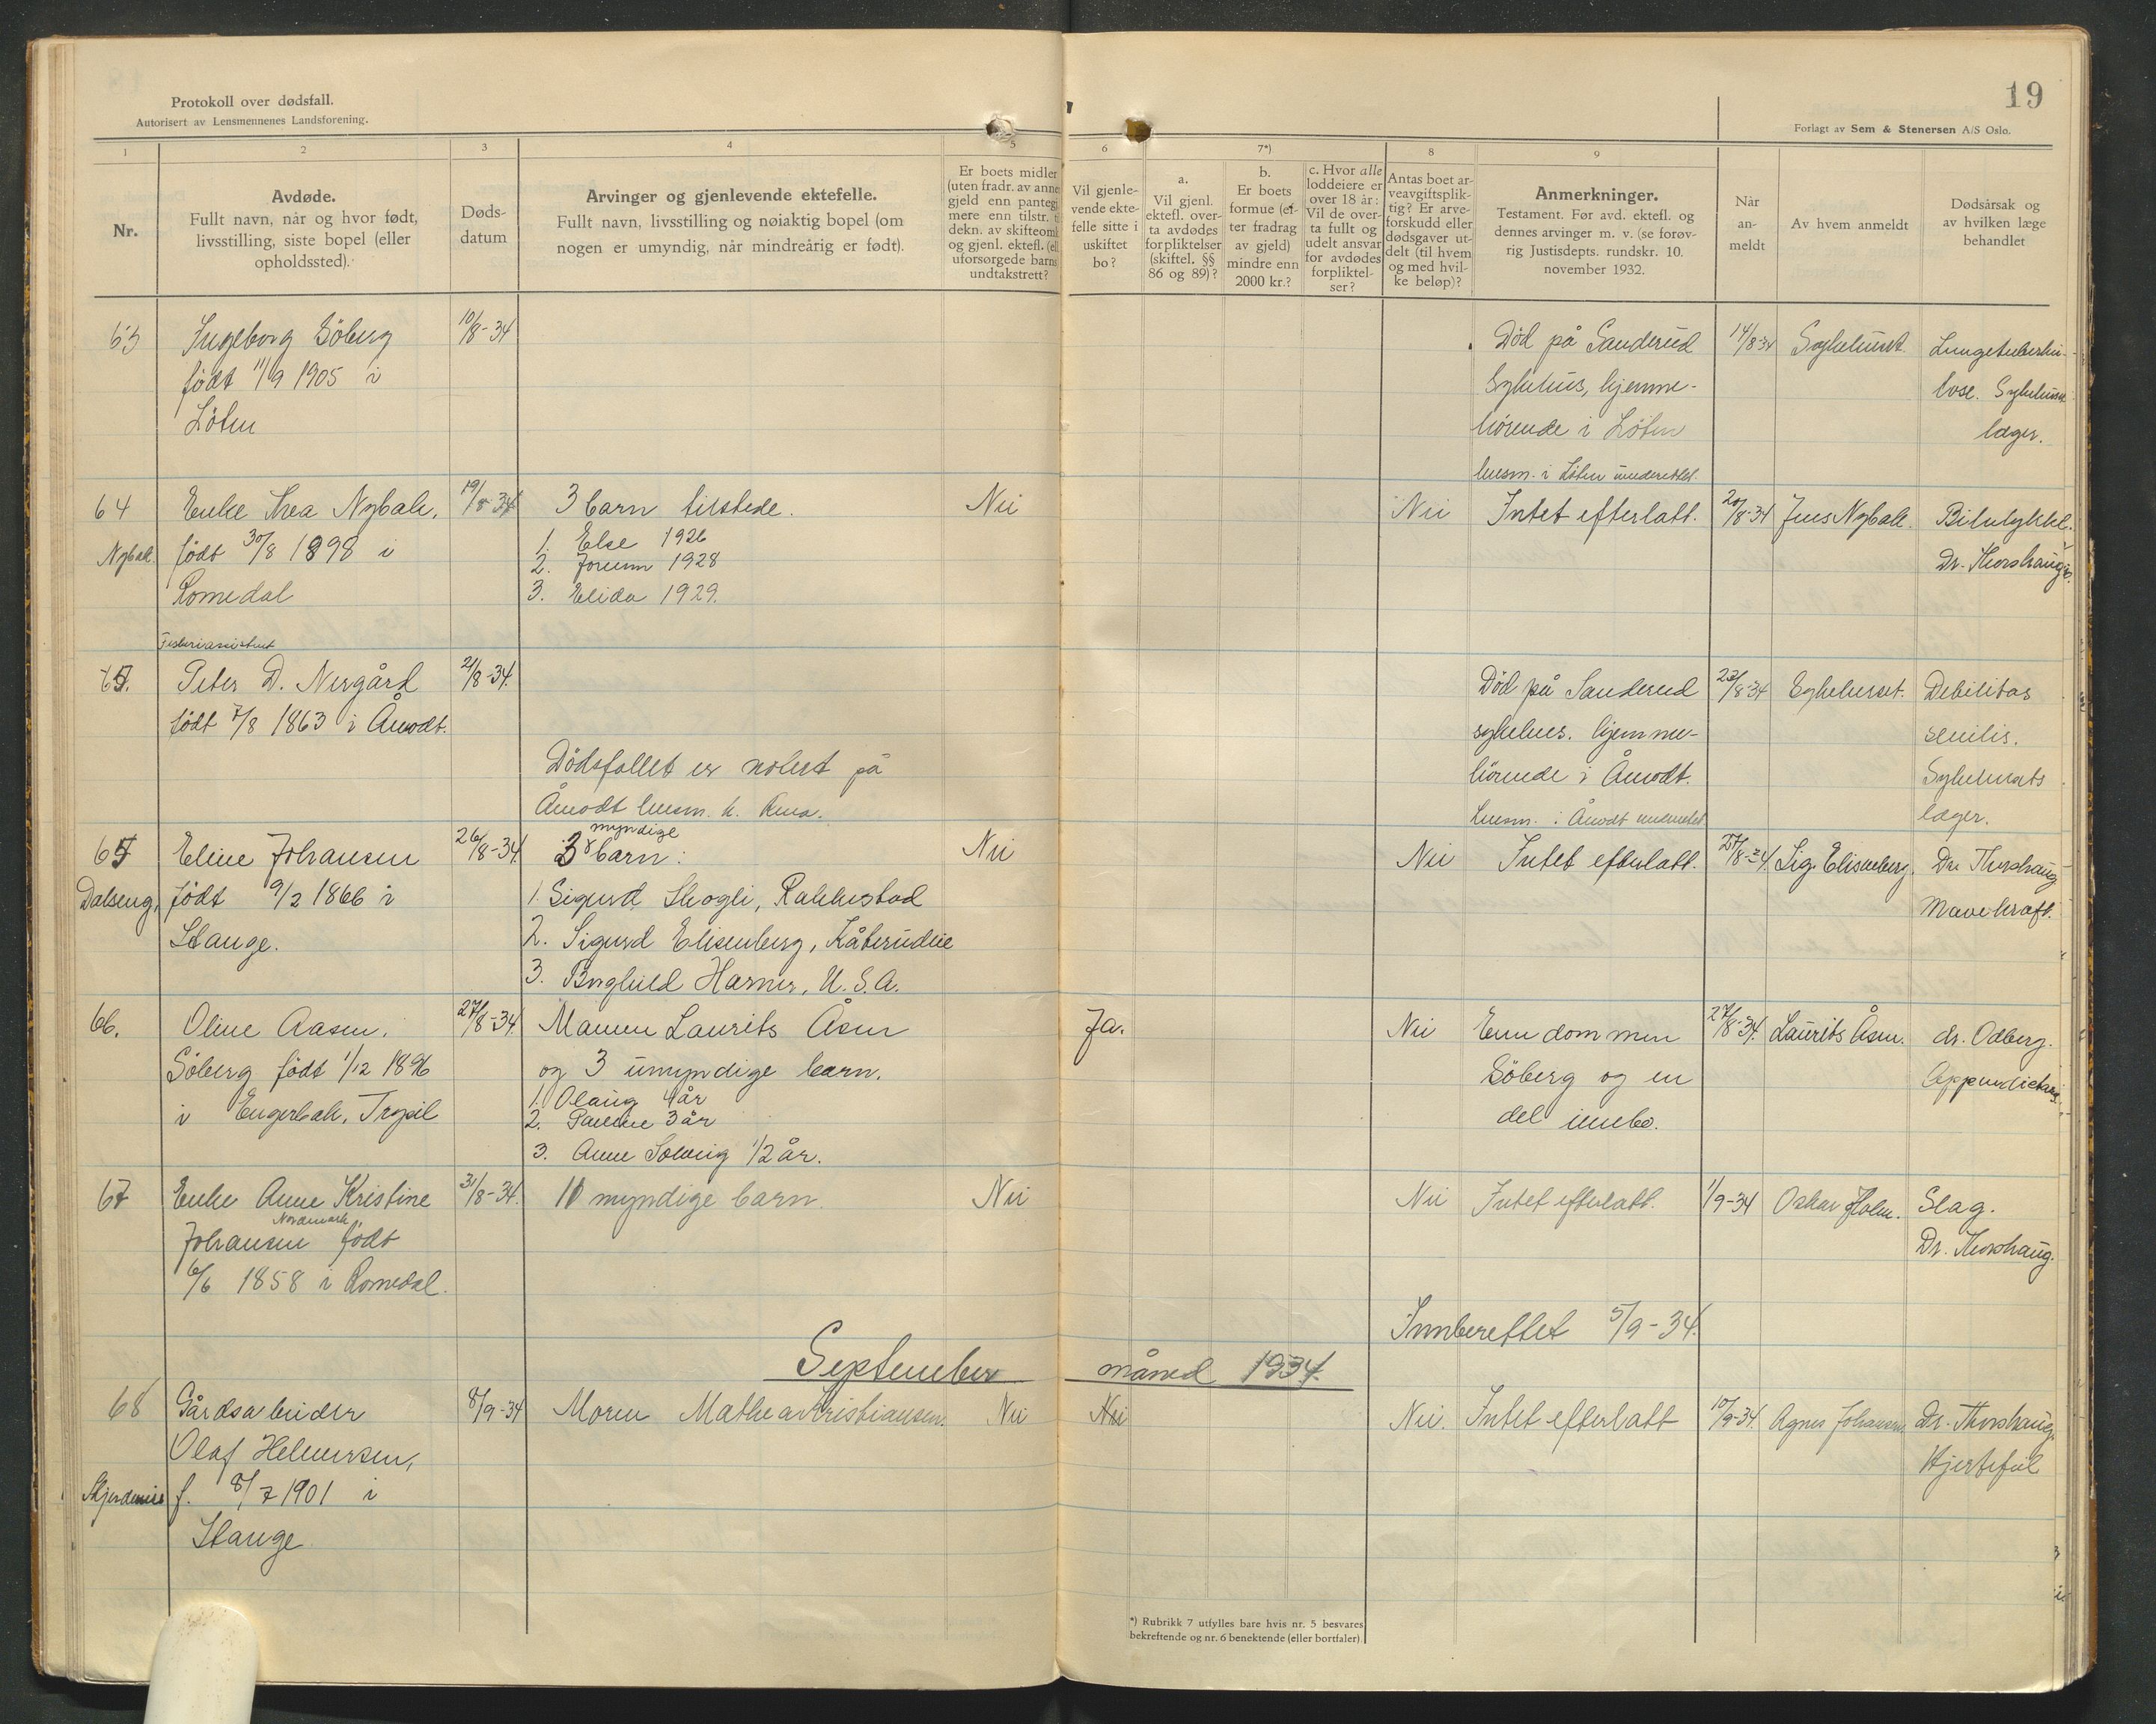 19
Protokoll over dødsfall.
Autorisert av Lensmennenes Landsforening.
Forlagt av Sem & Stenersen A/S Oslo.
1 2 3 4 5 6 7*) 8 9
Nr.
Avdøde.
Fullt navn, når og hvor født,
livsstilling, siste bopel (eller
opholdssted).
Døds-
datum
Arvinger og gjenlevende ektefelle.
Fullt navn, livsstilling og nøiaktig bopel (om
nogen er umyndig, når mindreårig er født).
Er boets midler
(uten fradr. av annen
gjeld enn pantegj
mere enn tilstr. t
dekn. av skifteomk
og gjenl. ektef. (ell
uforsørgede barns
undtakstrett?
Vil gjenle-
vende ekte-
felle sitte i
uskiftet
bo?
a.
Vil gjenl.
ektefl. over-
ta avdødes
forpliktelser
(skiftel. §§
86 og 89)?
b.
Er boets
formue (ef-
ter fradrag
av gjeld)
mindre enn
2000 kr.?
c. Hvor alle
loddeiere er
over 18 år:
Vil de over-
ta fullt og
udelt ansvar
for avdødes
forpliktel-
ser?
Antas boet ar-
veavgiftsplik-
tig? Er arve-
forskudd eller
dødsgaver ut-
delt (til hvem
og med hvil-
ke beløp)?
Anmerkninger.
Testament. Før avd. ektefl. og
dennes arvinger m. v. (se forøv-
rig Justisdepts. rundskr. 10.
november 1932.
Når
an-
meldt
Av hvem anmeldt
Dødsårsak og
av hvilken læge
behandlet
63 Ingeborg Söberg 10/8-34 Död på Sanderud 14/8-34 Sykehuset. Lungetuberku-
født 11/9 1905 i Sykehus, hjemme- lose. Sykehusets
Löten hörende i Löten læger.
lensm. i Löten underrettet.
64 Enke Thea Nybak, 19/8-34 3 barn tilstede. Nei Nei Intet efterlatt. 20/8-34 Jens Nybak.
Nybak. født 30/8 1898 i 1. Else 1926 Dr. Thorshaug.
Romedal 2. Jorunn 1928
3. Elida 1929.
Fiskeriassistent
65. Peter D. Nergård 21/8-34. Död på Sanderud 23/8-34 Sykehuset. Debilitas
født 7/8 1863 i Åmodt. sykehus. hjemme- senilis.
Dödsfallet er notert på hörende i Åmodt. Sykehusets
Åmodt lensm. k. Rena. Lensm. i Åmodt underrettet læger.
65 Eline Johansen 26/8-34 3 myndige barn: Nei Nei Intet efterlatt. 27/8-34. Sig. Elisenberg. Dr. Thorshaug
Dalseng, født 9/2 1866 i 1. Sigurd Skogli, Rakkestad Mavekræft.
Stange. 2. Sigurd Elisenberg, Kåterudlie
3. Borghild Harner, U.S.A.
66. Oline Aasen, 27/8-34. Mannen Laurits Åsen Ja. Nei Eiendommen 27/8-34. Laurits Åsen. dr. Odberg.
Söberg født 1/12 1896 og 3 umyndige barn. Söberg og en
i Engerbak, Trysil 1. Olaug 4 år del innbo.
2. Pauline 3 år
3. Anne Solveig 1/2 år.
67 Enke Anne Kristine 31/8-34. 10 myndige barn. Nei Nei Intet efterlatt. 1/9-34 Oskar Holm. Slag.
Nordmark,
Johansen født Dr. Thorshaug.
6/6 1858 i Romedal.
Innberettet 5/9-34.
September måned 1934.
68 Gårdsarbeider 8/9-34 Moren Mathea Kristiansen. Nei Nei Nei. Intet efterlatt 10/9-34. Agnes Johansen Dr. Thorshaug.
Olaf Helmersen, Hjertefeil
f. 8/7 1901 i
Stange
*) Rubrikk 7 utfylles bare hvis nr. 5 besvares
bekreftende og nr. 6 benektende (eller bortfaler)